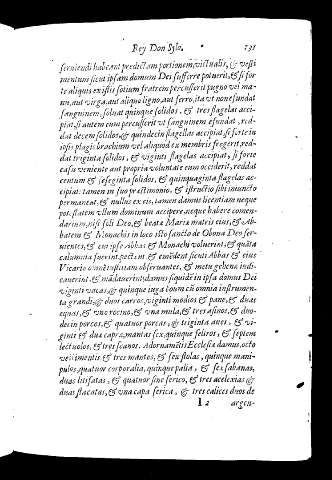 Rey Don Sylo. 131
seruiendi habeant prædictam portionem, victualis, & vesti
mentum sicut ipsam domum Dei sufferre potuerit, & si for
te aliquis ex istis sotium fratrem percusserit pugno vel ma
nu, aut virga, aut aliquo ligno, aut ferro, ita vt non efundat
sanguinem, soluat quinque solidos, & tres flagellas acci
piat, si autem eum percusserit vt sanguinem efundat, red-
dat decem solidos, & quindecin flagellas accipiat si forte in
ipsis plagis brachium vel aliquod ex membris fregerit, red-
dat triginta solidos, & viginti flagelas accipiat, si forte
casu veniente aut propria voluntate eum occiderit, reddat
centum & sesaginta solidos, & quinquaginta flagelas ac-
cipiat: tamen in suo præstimonio, & istructio sibi iniuncto
permaneat, & nullus ex eis, tamen damus licentiam neque
potestatem vllum dominum accipere, neque habere comen-
darium, nisi soli Deo, & beata Maria matris eius, & Ab-
batem & Monachis in loco isto sancto de Obona Deo ser-
uientes, & cum ipse Abbas & Monachi voluerint, & quāta
calumnia fuerint, pectum & emēdent sicuti Abbas & eius
Vicario
cauerint damus
viginti vacas, & quinque iuga boum cū omnia instrumen-
ta grandi, & duos carros, viginti modios & pane, & duas
equas, & vno rocino, & vna mula, & tres asinos, & duo-
decin porcos, & quatuor porcas, & triginta aues, & vi-
ginti & dua capra, mantas sex, quinque feltros, & septem
lectuolos, & tres scanos. Adornamētis Ecclesiæ damus, octo
vestimentis & tres mantos, & sex stolas, quinque mani-
pulos, quatuor corporalia, quinque palia, & sex sabanas,
duas litisatas, & quatuor sine serico, & tres acelexias &
duas flacatas, & vna capa serica, & tres calices duos de
I 2 argen-